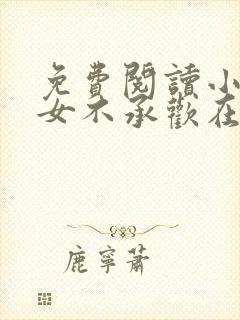 免費閱讀小
女不承歡在
鹿寧蕭